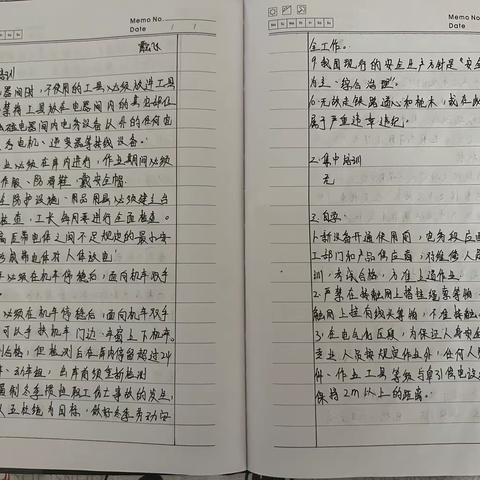 Memo No.
Date / /
戴飞
培训
电器间时，不使用的工具必须放进工具
禁将工具放在电器间内的其它部位
电器间内电务设备以外的任何电
电机、逆变器等接线设备。
业必须在库内进行，作业期间必须
作服、防滑鞋、戴安全帽
防护设施、用品用具必须建立台
检查，工长每周要进行全面检查。
高压带电体之间不足规定的最小安
带电体对人体放电
必须在机车停稳后，面向机车双手
必须在机车停稳后，面向机车双手
可以手扶机车门边、车窗上下机车。
合格，但检测后在库内停留超过24
动车组，出库前须重新检测
遏制冬季惯性职工伤亡事故的发生，
杜绝为目标，做好冬季劳动安
全工作。
9.我国现行的安全生产方针是“安全
为主、综合治理”。
属于严重违章违纪。
2.集中培训
无
3.自学：
1.新设备开通使用前，电务段应
工部门和产品供应商，对维修人员
训，考试合格，方准上道作业。
2.严禁在接触网上搭挂绳索等物，
触网上挂有线头等物，不准接
3.在电气化区段，为保证人身安全
专业人员按规定作业外，任何人
件、作业工具等须与牵引供电设
保持2m以上的距离。
Memo No.
Date